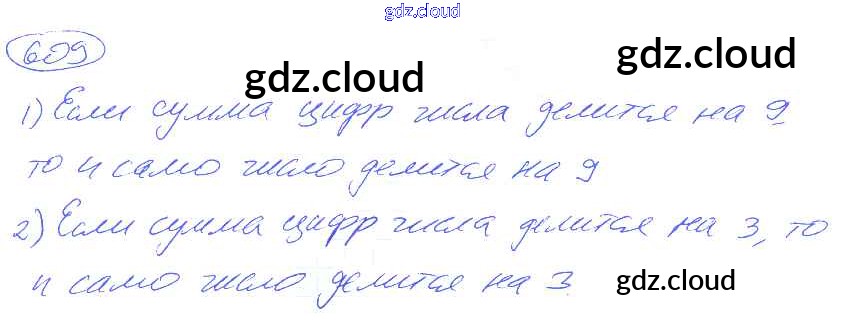 gdz.cloud
609
gdz.cloud
gdz.cloud
1) Если сумма цифр числа делится на 9,
то и само число делится на 9
2) Если сумма цифр числа делится на 3, то
и само число делится на 3.
gdz.cloud